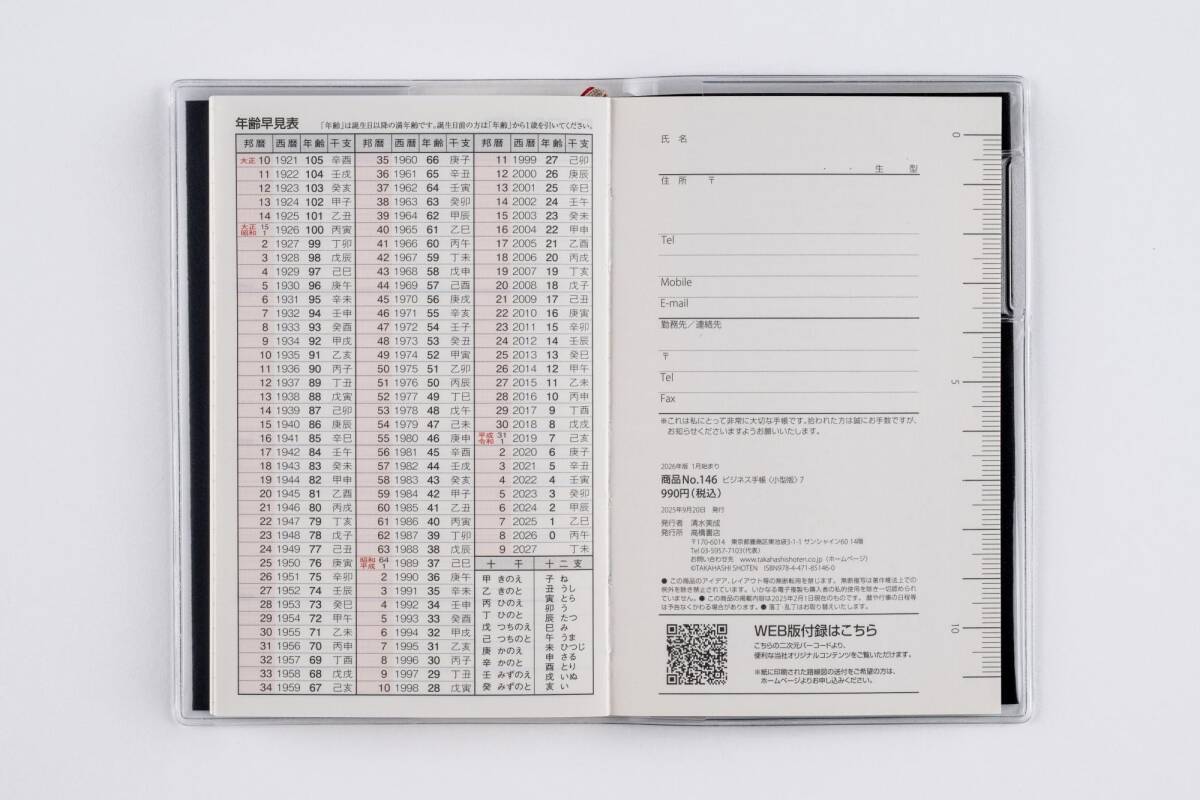 年齢早見表 「年齢」は誕生日以降の満年齢です。誕生日前の方は「年齢」から1歳を引いてください。
邦暦 西暦 年齢 干支 邦暦 西暦 年齢 干支 邦暦 西暦 年齢 干支
大正 10 1921 105 辛酉 35 1960 66 庚子 11 1999 27 己卯
11 1922 104 壬戌 36 1961 65 辛丑 12 2000 26 庚辰
12 1923 103 癸亥 37 1962 64 壬寅 13 2001 25 辛巳
13 1924 102 甲子 38 1963 63 癸卯 14 2002 24 壬午
14 1925 101 乙丑 39 1964 62 甲辰 15 2003 23 癸未
大正 15 昭和 1 1926 100 丙寅 40 1965 61 乙巳 16 2004 22 甲申
2 1927 99 丁卯 41 1966 60 丙午 17 2005 21 乙酉
3 1928 98 戊辰 42 1967 59 丁未 18 2006 20 丙戌
4 1929 97 己巳 43 1968 58 戊申 19 2007 19 丁亥
5 1930 96 庚午 44 1969 57 己酉 20 2008 18 戊子
6 1931 95 辛未 45 1970 56 庚戌 21 2009 17 己丑
7 1932 94 壬申 46 1971 55 辛亥 22 2010 16 庚寅
8 1933 93 癸酉 47 1972 54 壬子 23 2011 15 辛卯
9 1934 92 甲戌 48 1973 53 癸丑 24 2012 14 壬辰
10 1935 91 乙亥 49 1974 52 甲寅 25 2013 13 癸巳
11 1936 90 丙子 50 1975 51 乙卯 26 2014 12 甲午
12 1937 89 丁丑 51 1976 50 丙辰 27 2015 11 乙未
13 1938 88 戊寅 52 1977 49 丁巳 28 2016 10 丙申
14 1939 87 己卯 53 1978 48 戊午 29 2017 9 丁酉
15 1940 86 庚辰 54 1979 47 己未 30 2018 8 戊戌
16 1941 85 辛巳 55 1980 46 庚申 平成 31 令和 1 2019 7 己亥
17 1942 84 壬午 56 1981 45 辛酉 2 2020 6 庚子
18 1943 83 癸未 57 1982 44 壬戌 3 2021 5 辛丑
19 1944 82 甲申 58 1983 43 癸亥 4 2022 4 壬寅
20 1945 81 乙酉 59 1984 42 甲子 5 2023 3 癸卯
21 1946 80 丙戌 60 1985 41 乙丑 6 2024 2 甲辰
22 1947 79 丁亥 61 1986 40 丙寅 7 2025 1 乙巳
23 1948 78 戊子 62 1987 39 丁卯 8 2026 0 丙午
24 1949 77 己丑 63 1988 38 戊辰 9 2027 丁未
25 1950 76 庚寅 昭和 64 平成 1 1989 37 己巳 十干 十二支
26 1951 75 辛卯 2 1990 36 庚午 甲 きのえ 子 ね
27 1952 74 壬辰 3 1991 35 辛未 乙 きのと 丑 うし
28 1953 73 癸巳 4 1992 34 壬申 丙 ひのえ 寅 とら
29 1954 72 甲午 5 1993 33 癸酉 丁 ひのと 卯 う
30 1955 71 乙未 6 1994 32 甲戌 戊 つちのえ 辰 たつ
31 1956 70 丙申 7 1995 31 乙亥 己 つちのと 巳 み
32 1957 69 丁酉 8 1996 30 丙子 庚 かのえ 午 うま
33 1958 68 戊戌 9 1997 29 丁丑 辛 かのと 未 ひつじ
34 1959 67 己亥 10 1998 28 戊寅 壬 みずのえ 申 さる
癸 みずのと 酉 とり
戌 いぬ
亥 い
氏 名
・ ・ 生 型
住 所 〒
Tel
Mobile
E-mail
勤務先／連絡先
〒
Tel
Fax
※これは私にとって非常に大切な手帳です。拾われた方は誠にお手数ですが、
お知らせくださいますようお願いいたします。
2026年版 1月始まり
商品No.146 ビジネス手帳〈小型版〉7
990円(税込)
2025年9月20日 発行
発行者 清水美成
発行所 高橋書店
〒170-6014 東京都豊島区東池袋3-1-1 サンシャイン60 14階
Tel 03-5957-7103(代表)
お問い合わせ先 www.takahashishoten.co.jp（ホームページ）
©TAKAHASHI SHOTEN ISBN978-4-471-85146-0
● この商品のアイデア、レイアウト等の無断転用を禁じます。 無断複写は著作権法上での
例外を除き禁止されています。 いかなる電子複製も購入者の私的使用を除き一切認められ
ていません。● この商品の掲載内容は2025年2月1日現在のものです。 暦や行事の日程等
は予告なくかわる場合があります。● 落丁・乱丁はお取り替えいたします。
WEB版付録はこちら
こちらの二次元バーコードより、
便利な当社オリジナルコンテンツをご覧いただけます。
※紙に印刷された路線図の送付をご希望の方は、
ホームページよりお申し込みください。
0
5
10